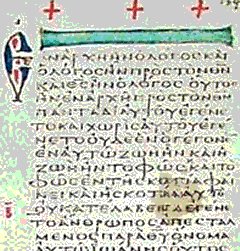 ΕΝΑΡΧΗΗΝΟΛΟΓΟϹΚΑΙ
ΟΛΟΓΟϹΗΝΠΡΟϹΤΟΝΘΝ
ΚΑΙΘϹΗΝΟΛΟΓΟϹ ΟΥΤΟϹ
ΗΝΕΝΑΡΧΗΠΡΟϹΤΟΝΘΝ
ΠΑΝΤΑΔΙΑΥΤΟΥΕΓΕΝΕ
ΤΟΚΑΙΧΩΡΙϹΑΥΤΟΥΕΓΕ
ΝΕΤΟΟΥΔΕΕΝΟΓΕΓΟΝΕΝ
ΕΝΑΥΤΩΖΩΗΗΝΚΑΙΗ
ΖΩΗΗΝΤΟΦΩϹ
ΦΩϹΕΝΤΗϹΚΟΤΙΑΦΑΙ
ΝΕΙΚΑΙΗϹΚΟΤΙΑΑΥΤΟ
ΟΥΚΑΤΕΛΑΒΕΝ ΕΓΕΝΕ
ΤΟΑΝΘΡΩΠΟϹΑΠΕϹΤΑΛ
ΜΕΝΟϹΠΑΡΑΘΥΟΝΟΜΑ